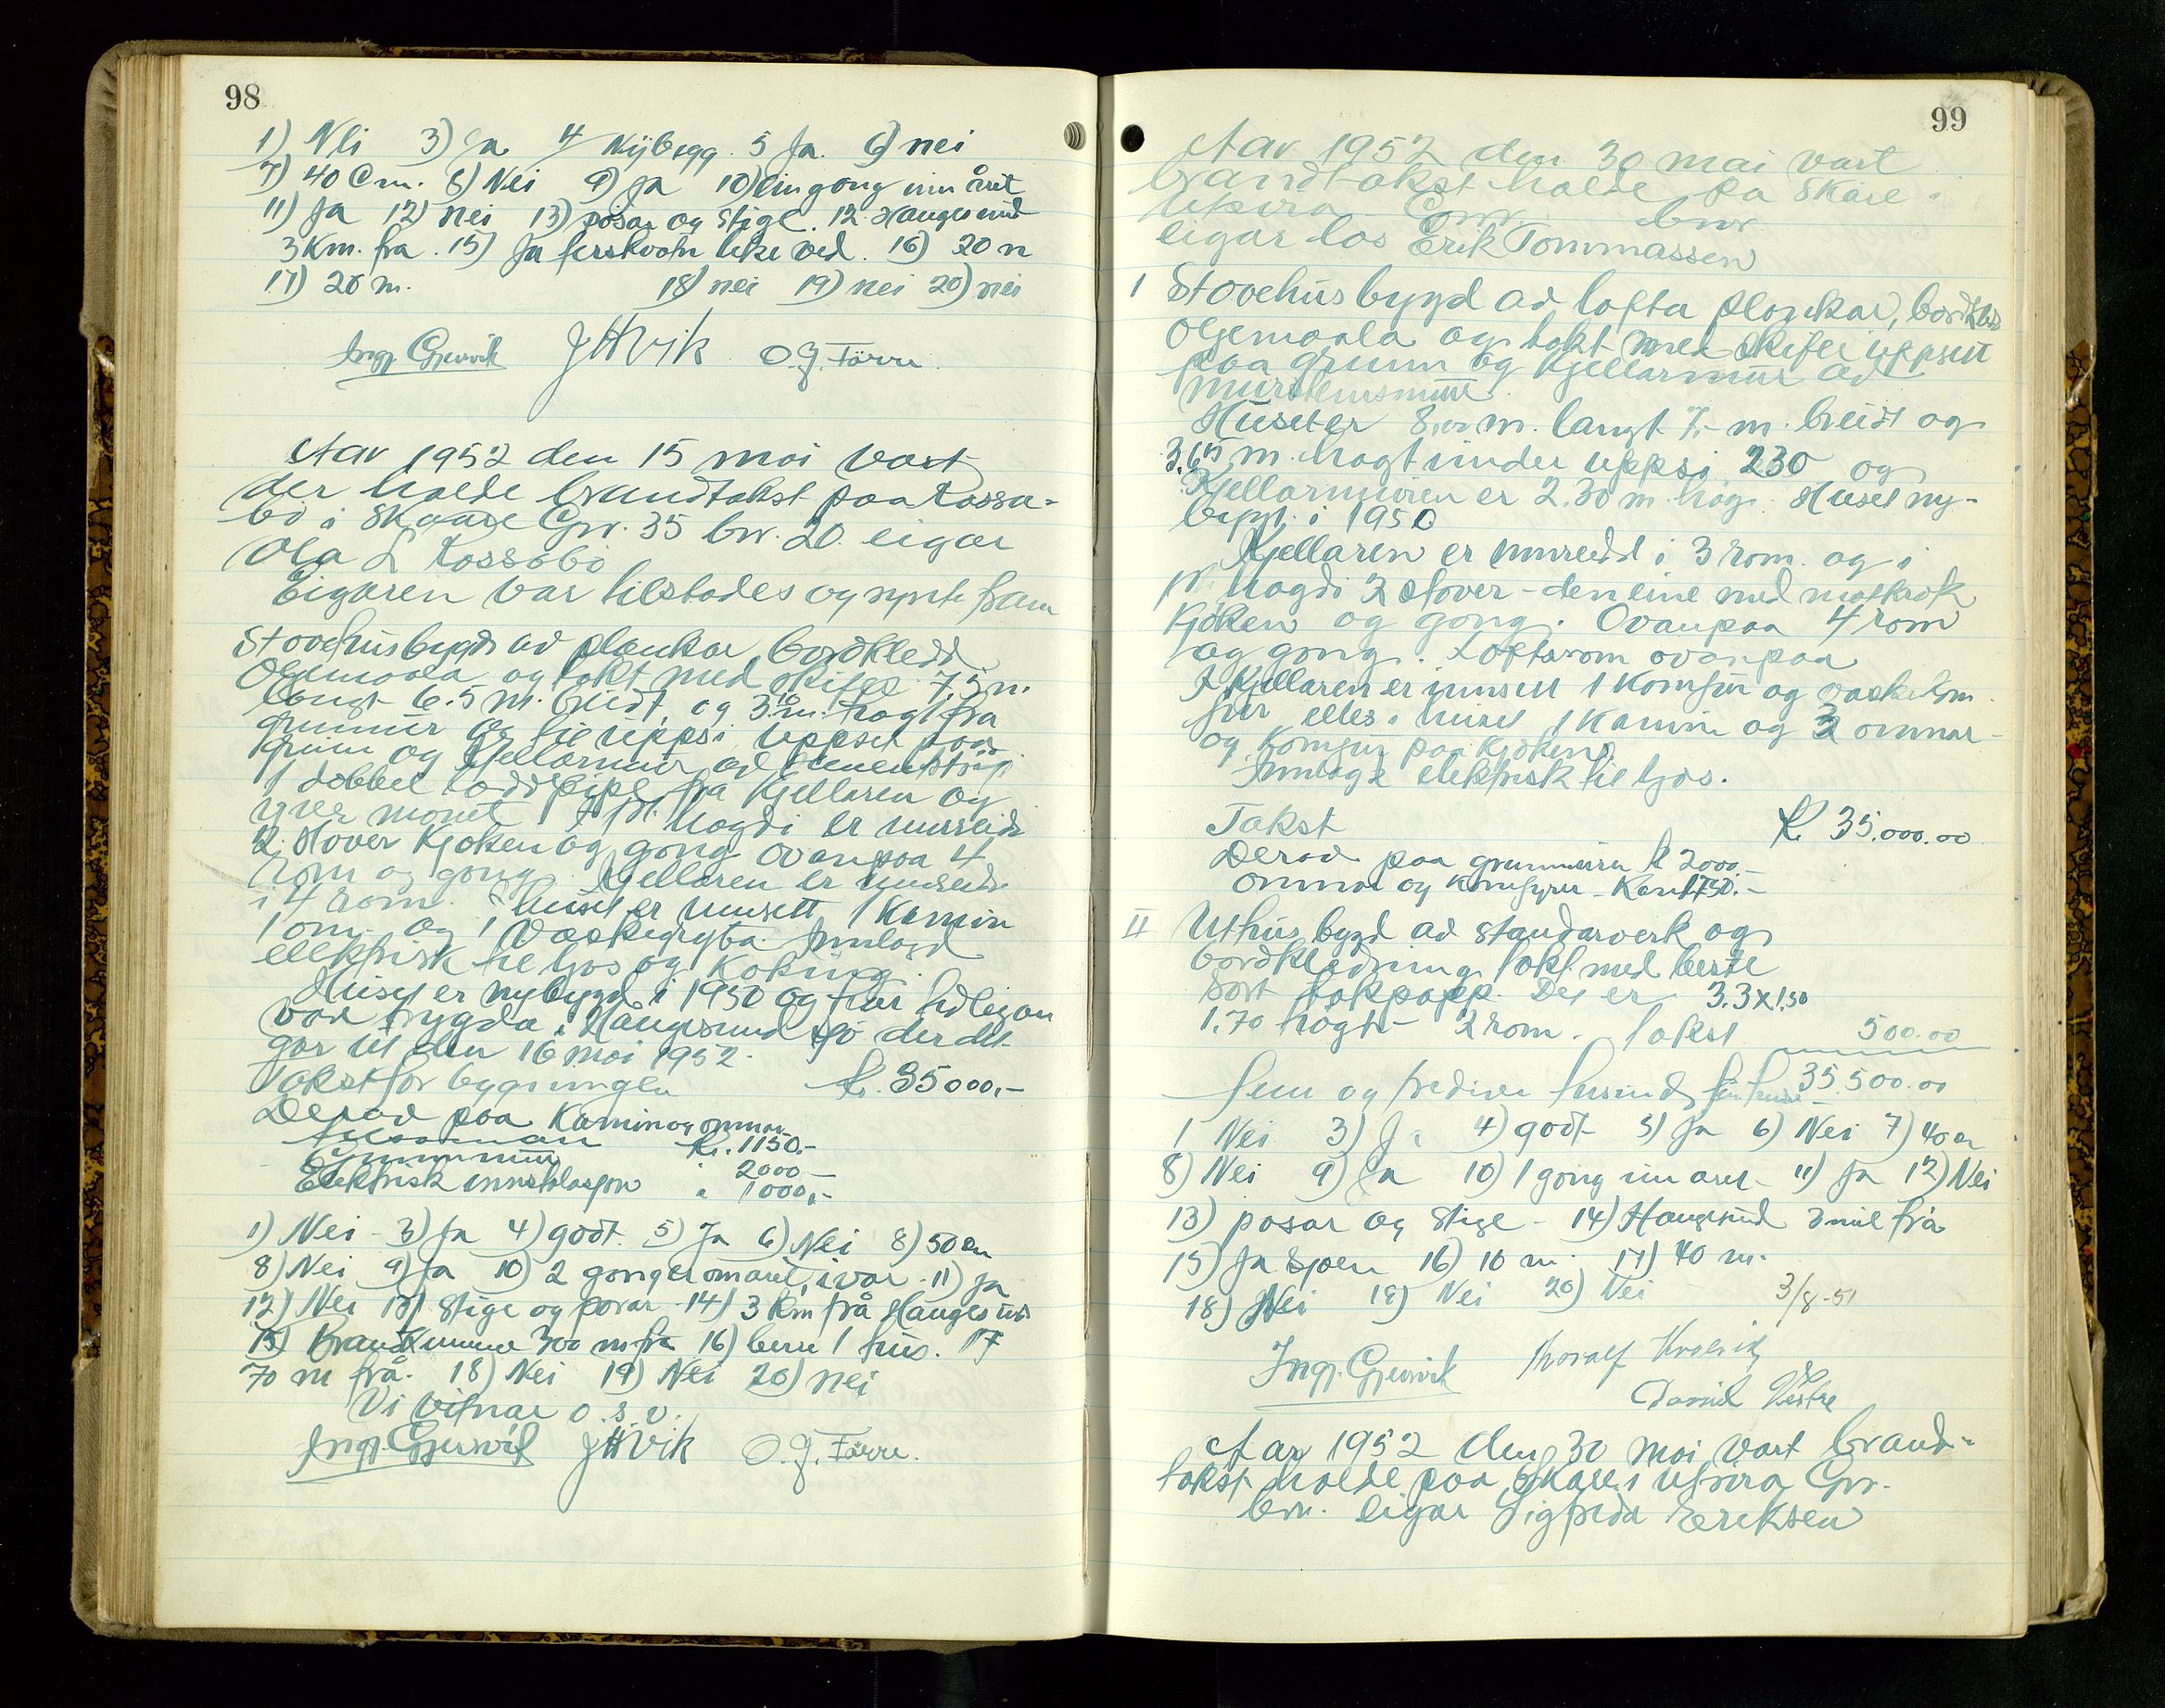 98
1) Nei 3) Ja 4 Nybygg. 5 Ja. 6) nei
7) 40 Cm. 8) Nei 9) Ja 10) Ein gong um året
11) Ja 12) nei 13) posar og stige. 12. Haugesund
3 Km. fra. 15) Ja ferskvatn like ved. 16) 20 m
17) 20 m. 18) nei 19) nei 20) nei
Ingj. Gjersvik J H Vik O. J. Førre.
Aar 1952 den 15 mai vart
der halde brandtakst paa Rossa-
bø i Skaare Gnr. 35 bnr. 20. eigar
Ola L Rossabø
Eigaren var tilstades og synte fram
Stovehus bygd av plankar, bordkledd
Oljemaala og takt med skifer 7,5 m.
langt 6.5 m. breidt, og 3.10 m. høgt fra
grunnur og til uppsi uppset paa
grunn og Kjellarmur ad
1 dobbel pipe fra Kjellaren og
yver mønet I 1ste høgdi er innreidd
2. Stover Kjøken og gong Ovanpaa 4
rom og gong. Kjellaren er innreidd
i 4 rom. I huset er innsett 1 Kamin
1 omn og 1 Vaskegryta. Innlagd
elektrisk til ljos og Koking.
Huset er nybygd i 1950 og har tidlegare
vore trygda i Haugesund der det
gar ut den 16 mai 1952.
Takst for bygningen kr. 35000.-
Derav paa Kamin og omnar
Kr. 1150.-
Grunnmur 2000.-
Elektrisk innstalasjon " 1000.-
1) Nei - 3) Ja 4) godt. 5) Ja 6) Nei 8) 50 cm
8) Nei 9) Ja 10) 2 gonger om aaret, i var. 11) Ja
12) Nei 13) Stige og posar 14) 3 Km frå Haugesund
15) Brandkumme 300 m frå 16) berre 1 hus. 17
70 m frå. 18) Nei 19) Nei 20) nei
Vi vitnar o.s.v.
Ingj. Gjersvik J H Vik O. J. Førre.
99
Aar 1952 den 30 mai vart
brandtakst halde pa Skare i
Utsira Gnr. bnr.
eigar los Erik Tommassen
1 Stovehus bygd ad lafta plankar, bordkledd
Oljemaala og takt med skifer uppsett
paa grunn og Kjellarmur ad
mursteinsmur.
Huset er m. langt 7,- m. breidt og
3.65 m. høgt under uppsi 230 og
Kjellarmuren er 2.30 m. høg. Huset ny-
bygt i 1950
Kjellaren er innreidd i 3 rom. og i
1ste høgdi 2 stover - den eine med matkrok
Kjøken og gong. Ovanpaa 4 rom
og gong. Loftsrom ovanpaa
I Kjellaren er innsett 1 Komfur og vaskekom
fur elles i huset 1 Kamin og 2 omnar
og Komfur paa Kjøkenet
Innlagt elektrisk til ljos.
Takst Kr. 35.000.00
Derav paa grunnmuren kr 2000.-
omnar og komfyrer - Kamin 1750.-
II Uthus bygd ad standarverk og
bordkledning takt med beste
sort takpapp. Det er 3.3 x 1.50
1.70 høgt - 2 rom. Takst 500.00
Fem og tredive tusind fem hundre 35.500.00
1 Nei 3) Ja 4) godt 5) Ja 6) Nei 7) 40 cm
8) Nei 9) Ja 10) 1 gong um aret - 11) Ja 12) Nei
13) posar og stige - 14) Haugesund 3 mil frå
15) Ja Sjoen 16) 10 m. 17) 40 m.
18) Nei 19) Nei 20) Nei 3/8-51
Ingj. Gjersvik Thoralf Kvalvik
David Vestre
Aar 1952 den 30 mai vart brand-
takst halde paa Skare i Utsira Gnr.
bnr. eigar Sigfrida Eriksen